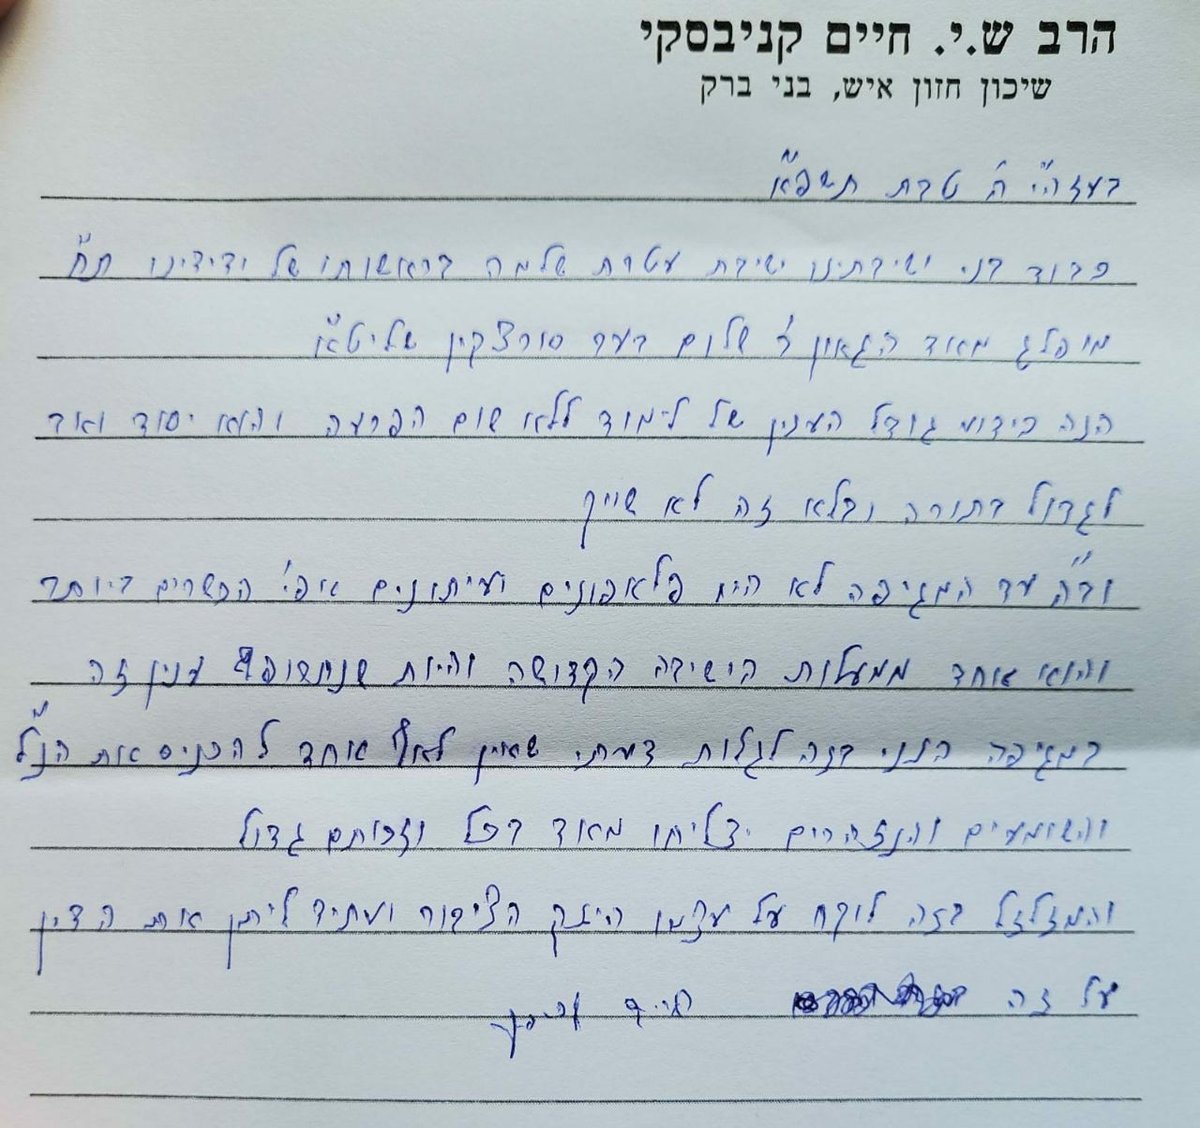 הרב ש.י. חיים קניבסקי
שיכון חזון איש, בני ברק
בעזהי"י ה' טבת תשפ"א
כבוד בני ישיבתינו ישיבת עטרת שלמה בראשותו של ידידינו תח"ח
מופלג מאוד הגאון ר' שלום בער סורצקין שליט"א
הנה כידוע גודל הענין של לימוד ללא שום הפרעה והוא יסוד ואב
לגדול בתורה ובלא זה לא שייך
וב"ה עד המגיפה לא היו פלאפונים ועיתונים אפי' הכשרים ביותר
והוא אחד ממעלות הישיבה הקדושה והיות שנתרופף ענין זה
במגיפה הנני בזה לגלות דעתי שאין לאף אחד להכניס את הנ"ל
והשומעים והנזהרים יצליחו מאוד בכל וזכותם גדול
והמזלזל בזה לוקח על עצמו היזק הציבור ועתיד ליתן את הדין
על זה חיים